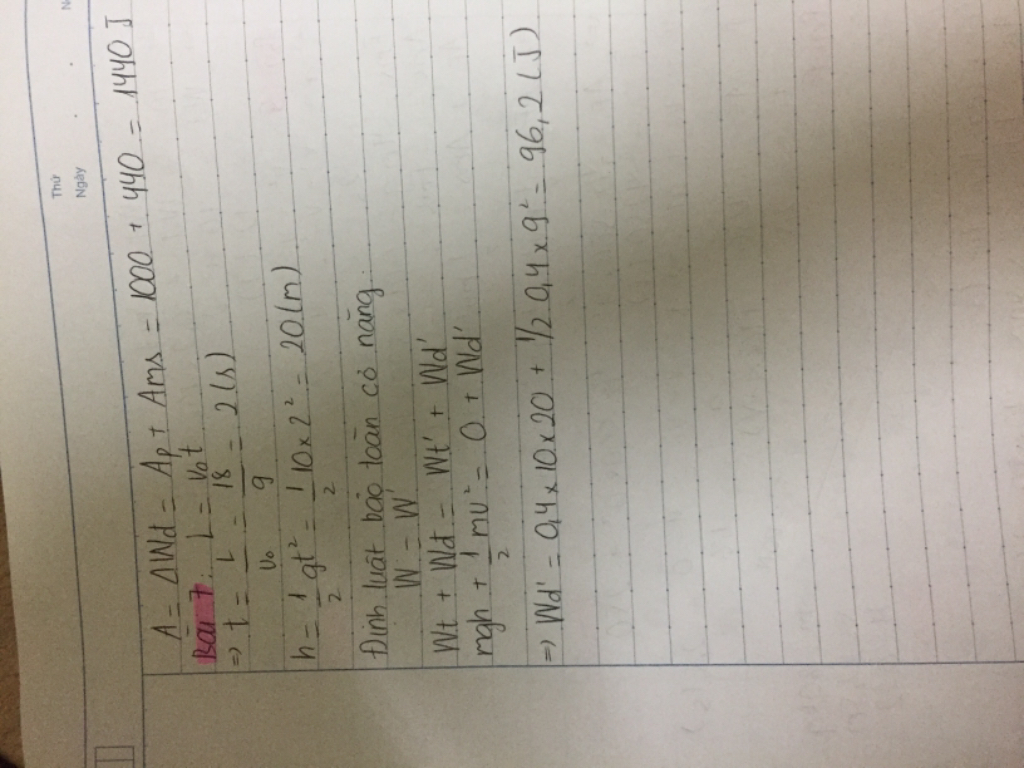 Thứ
Ngày
A = ΔWd = Ap + Ams = 1000 + 440 = 1440 J
Bài 7: L = V₀t
=> t = L/V₀ = 18/9 = 2(s)
h = 1/2 gt² = 1/2 10x2² = 20(m)
Định luật bảo toàn cơ năng.
W = W'
Wt + Wd = Wt' + Wd'
mgh + 1/2 mv² = 0 + Wd'
=> Wd' = 0,4x10x20 + 1/2 0,4x9² = 96,2(J)